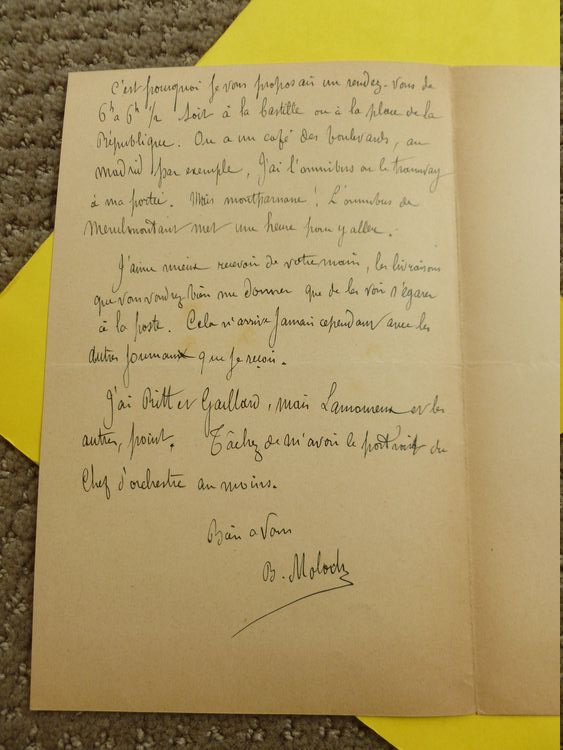 C'est pourquoi je vous proposais un rendez-vous de
6h à 6h 1/2 soit à la bastille ou à la place de la
République. Ou a un café des boulevards, au
madrid par exemple, J'ai l'omnibus ou le tramway
à ma portée. Mais montparnasse! L'omnibus de
Menilmontant met une heure pour y aller.
J'aime mieux recevoir de votre main, les livraisons
que vous voudrez bien me donner que de les voir s'égarer
à la poste. Cela n'arrive Jamais cependant avec les
autres journaux que je reçois.
J'ai et Gaillard, mais Lamoureux et les
autres, point. Tâchez de m'avoir le portrait du
Chef d'orchestre au moins.
Bien a vous
B. Moloch